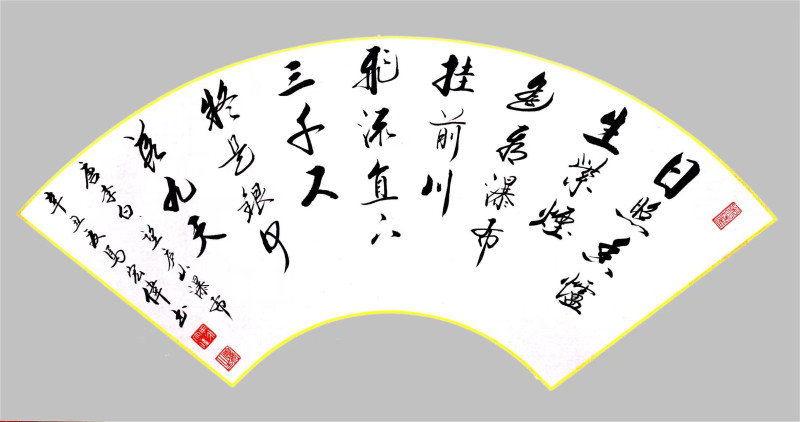 日照香爐
生紫煙
遙看瀑布
挂前川
飛流直下
三千尺
疑是銀河
落九天
唐李白望庐山瀑布
辛丑夏馬宏偉书